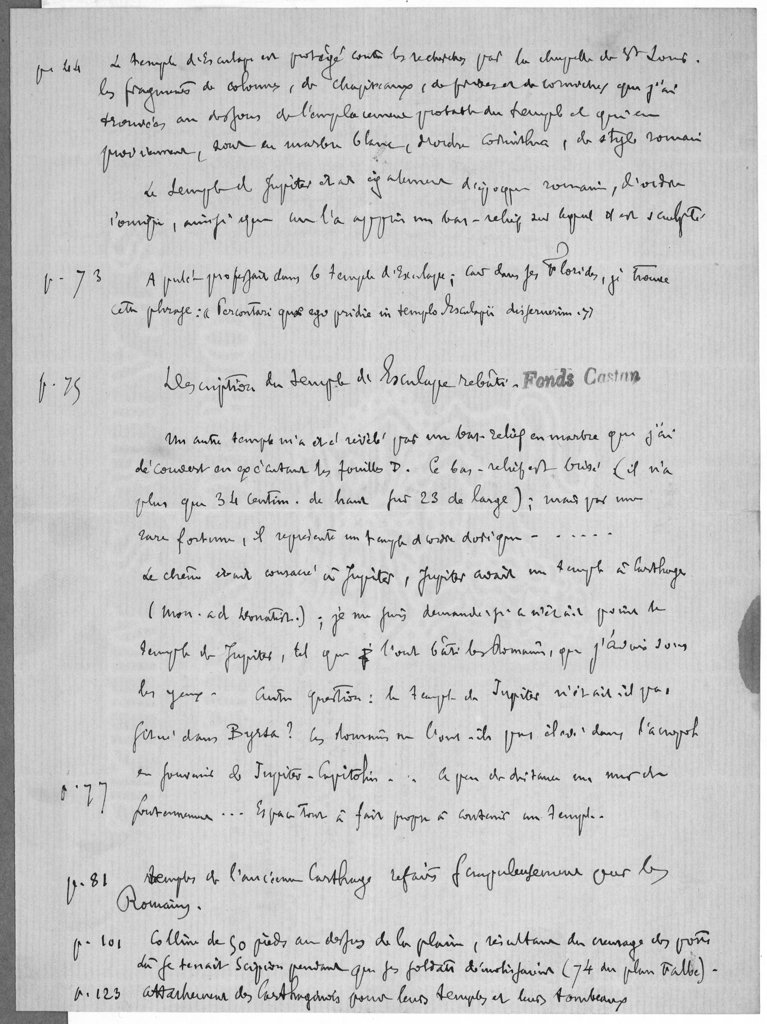 p. 44 Le temple d'Esculape est protégé contre les recherches par la chapelle de St Louis.
les fragments de colonnes, de chapiteaux, de frises et de corniches que j'ai
trouvées au dessous de l'emplacement probable du temple et qui en
proviennent, sont en marbre blanc, d'ordre corinthien, de style romain
Le temple de Jupiter était également d'époque romaine, d'ordre
ionique, ainsi que me l'a appris un bas-relief sur lequel il est sculpté
p. 73 Apulée professait dans le temple d'Esculape; car dans ses Florides, j'ai trouvé
cette phrase: « Percontari quae ego pridie in templo Æsculapii disseruerim. »
p. 75 Description du temple d'Esculape rebâti. Fonds Castan
Un autre temple m'a été révélé par un bas-relief en marbre que j'ai
découvert en exécutant les fouilles D. Ce bas-relief est brisé (il n'a
plus que 34 centim. de haut sur 23 de large); mais par une
rare fortune, il représente un temple d'ordre dorique - - . . . . .
Le chêne était consacré à Jupiter, Jupiter avait un temple à Carthage
(Mon. ad Donatist.); je me suis demandé si ce n'était point le
temple de Jupiter, tel que l'ont bâti les Romains, que j'avais sous
les yeux. Autre question: le temple de Jupiter n'était-il pas
situé dans Byrsa? Les Romains ne l'ont-ils pas élevé dans l'acropole
en souvenir de Jupiter-Capitolin . . . A peu de distance un mur de
p. 77 soutènement ... Espace tout à fait propre à contenir un temple.
p. 81 temples de l'ancienne Carthage refaits scrupuleusement par les
Romains.
p. 101 Colline de 50 pieds au dessus de la plaine, résultant du creusage des ports
où se tenait Scipion pendant que ses soldats démolissaient (74 du plan Falbe).
p. 123 attachement des Carthaginois pour leurs temples et leurs tombeaux